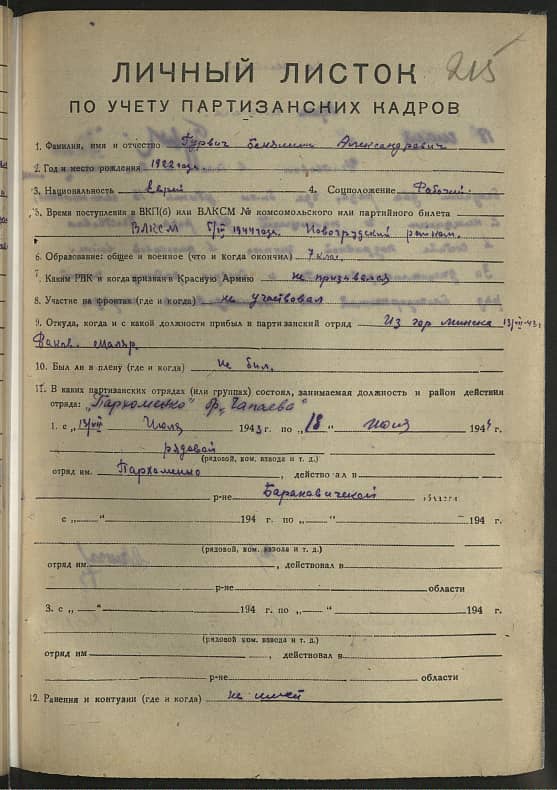 215
ЛИЧНЫЙ ЛИСТОК
ПО УЧЕТУ ПАРТИЗАНСКИХ КАДРОВ
1. Фамилия, имя и отчество Гурвич Бенямин Александрович
2. Год и место рождения 1922 года.
3. Национальность Еврей 4. Соцположение Рабочий.
5. Время поступления в ВКП(б) или ВЛКСМ № комсомольского или партийного билета
ВЛКСМ 1944 года Новогрудский райком.
6. Образование: общее и военное (что и когда окончил) 7 клас.
7. Каким РВК и когда призван в Красную Армию не призывался
8. Участие на фронтах (где и когда) не участвовал
9. Откуда, когда и с какой должности прибыл в партизанский отряд Из гор минска 13/VII-43 г.
маляр.
10. Был ли в плену (где и когда) не был.
11. В каких партизанских отрядах (или группах) состоял, занимаемая должность и район действия
отряда: „Пархоменко" бр. Чапаева"
1. с „13/VII Июля 1943 г. по „18" Июля 1944 г.
рядовой
(рядовой, ком. взвода и т. д.)
отряд им. Пархоменко, действовал в
р-не Барановической области
с „ — " 194 г. по „ — " 194 г.
(рядовой, ком. взвода и т. д.)
отряд им. , действовал в
р-не области
3. с „ — " 194 г. по „ — " 194 г.
(рядовой, ком. взвода и т. д.)
отряд им , действовал в
р-не области
12. Ранения и контузии (где и когда) не имеет